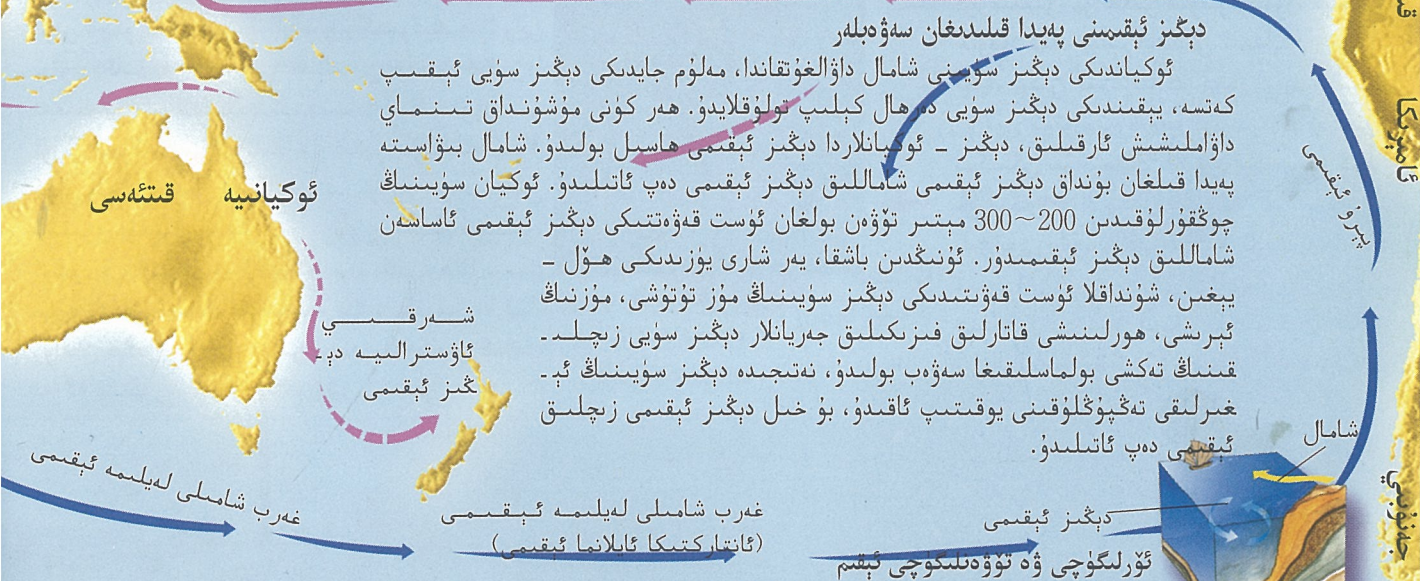 دېڭىز ئېقىمىنى پەيدا قىلىدىغان سەۋەبلەر
ئوكياندىكى دېڭىز سۈيىنى شامال داۋالغۇتقاندا، مەلۇم جايدىكى دېڭىز سۈيى ئېقىپ
كەتسە، يېقىندىكى دېڭىز سۈيى دەرھال كېلىپ تولۇقلايدۇ. ھەر كۈنى مۇشۇنداق تىنماي
داۋاملىشىش ئارقىلىق، دېڭىز ـ ئوكيانلاردا دېڭىز ئېقىمى ھاسىل بولىدۇ. شامال بىۋاسىتە
پەيدا قىلغان بۇنداق دېڭىز ئېقىمى شاماللىق دېڭىز ئېقىمى دەپ ئاتىلىدۇ. ئوكيان سۈيىنىڭ
چوڭقۇرلۇقىدىن 200~300 مېتىر تۆۋەن بولغان ئۈست قەۋەتتىكى دېڭىز ئېقىمى ئاساسەن
شاماللىق دېڭىز ئېقىمىدۇر. ئۇنىڭدىن باشقا، يەر شارى يۈزىدىكى ھۆل ـ
يېغىن، شۇنداقلا ئۈست قەۋىتىدىكى دېڭىز سۈيىنىڭ مۇز تۇتۇشى، مۇزنىڭ
ئېرىشى، ھورلىنىشى قاتارلىق فىزىكىلىق جەريانلار دېڭىز سۈيى زىچلىـ
قىنىڭ تەكشى بولماسلىقىغا سەۋەب بولىدۇ، نەتىجىدە دېڭىز سۈيىنىڭ ئېـ
غىرلىقى تەڭپۇڭلۇقىنى يوقىتىپ ئاقىدۇ، بۇ خىل دېڭىز ئېقىمى زىچلىق
ئېقىمى دەپ ئاتىلىدۇ.
ئوكيانىيە قىتئەسى
شەرقىي
ئاۋسترالىيە دېـ
ڭىز ئېقىمى
غەرب شامىلى لەيلىمە ئېقىمى
غەرب شامىلى لەيلىمە ئېقىمى
(ئانتاركتىكا ئايلانما ئېقىمى)
پېرۇ ئېقىمى
ئامېرىكا
جەنۇبىي
شامال
دېڭىز ئېقىمى
ئۆرلىگۈچى ۋە تۆۋەنلىگۈچى ئېقىم